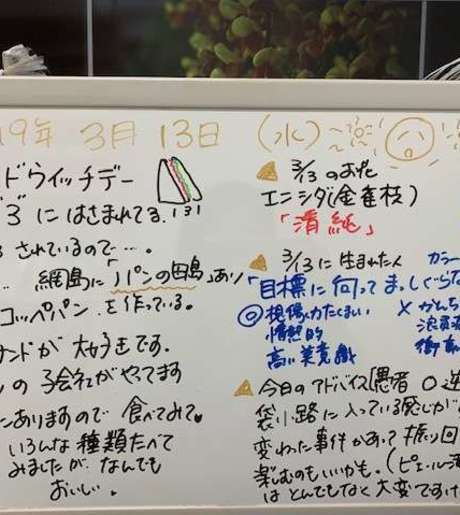 19年 3月 13日 (水)
ドウィッチデー
"3"にはさまれてる. 131
されているので…。
網島に「パンの田島」あり
コッペパンを作っている。
サンドが大好きです。
の子会社がやってます
にありますので 食べてみて♥
いろんな種類たべて
みましたが、なんでも
おいしい。
3/13のお花
エニシダ(金雀枝)
「清純」
3/13に生まれた人 カラー
「目標に向ってまっしぐらな
◎想像力たくましい
情熱的
高い美意識
×がんち
浪費
衝
今日のアドバイス[愚者 ○逆
袋小路に入っている感じが
変わった事件があって振り回
楽しむのもいいかも。(ピエール
はとんでもなく大変ですけ